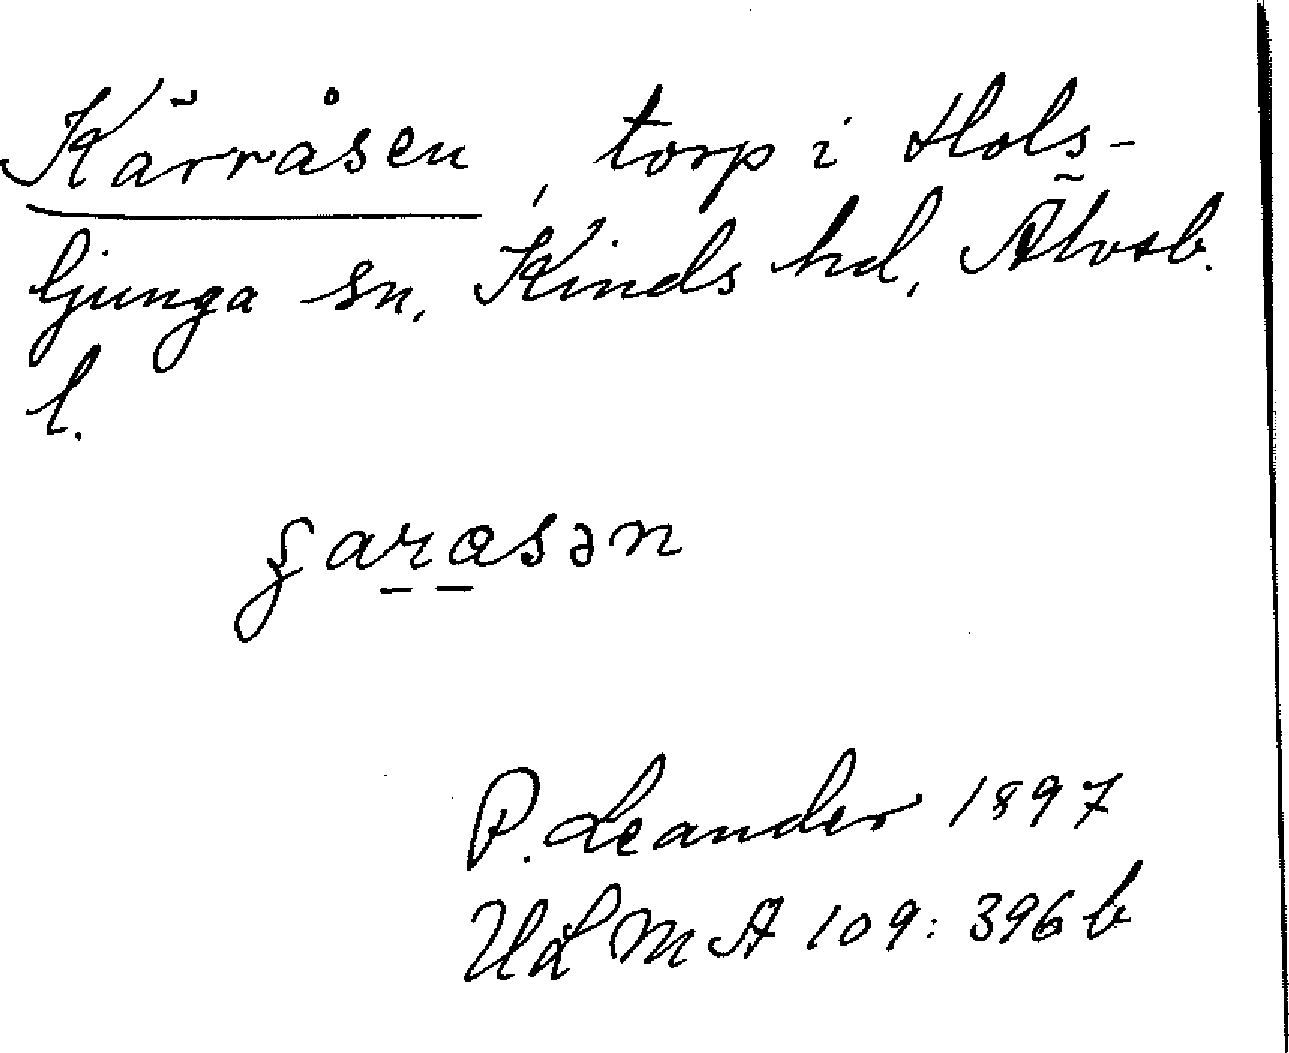 Kärråsen, torp i Hols-
ljunga sn, Kinds hd, Älvsb.
l.
ʂar̲a̲sən
P. Leander 1897
ULMA 109:396b